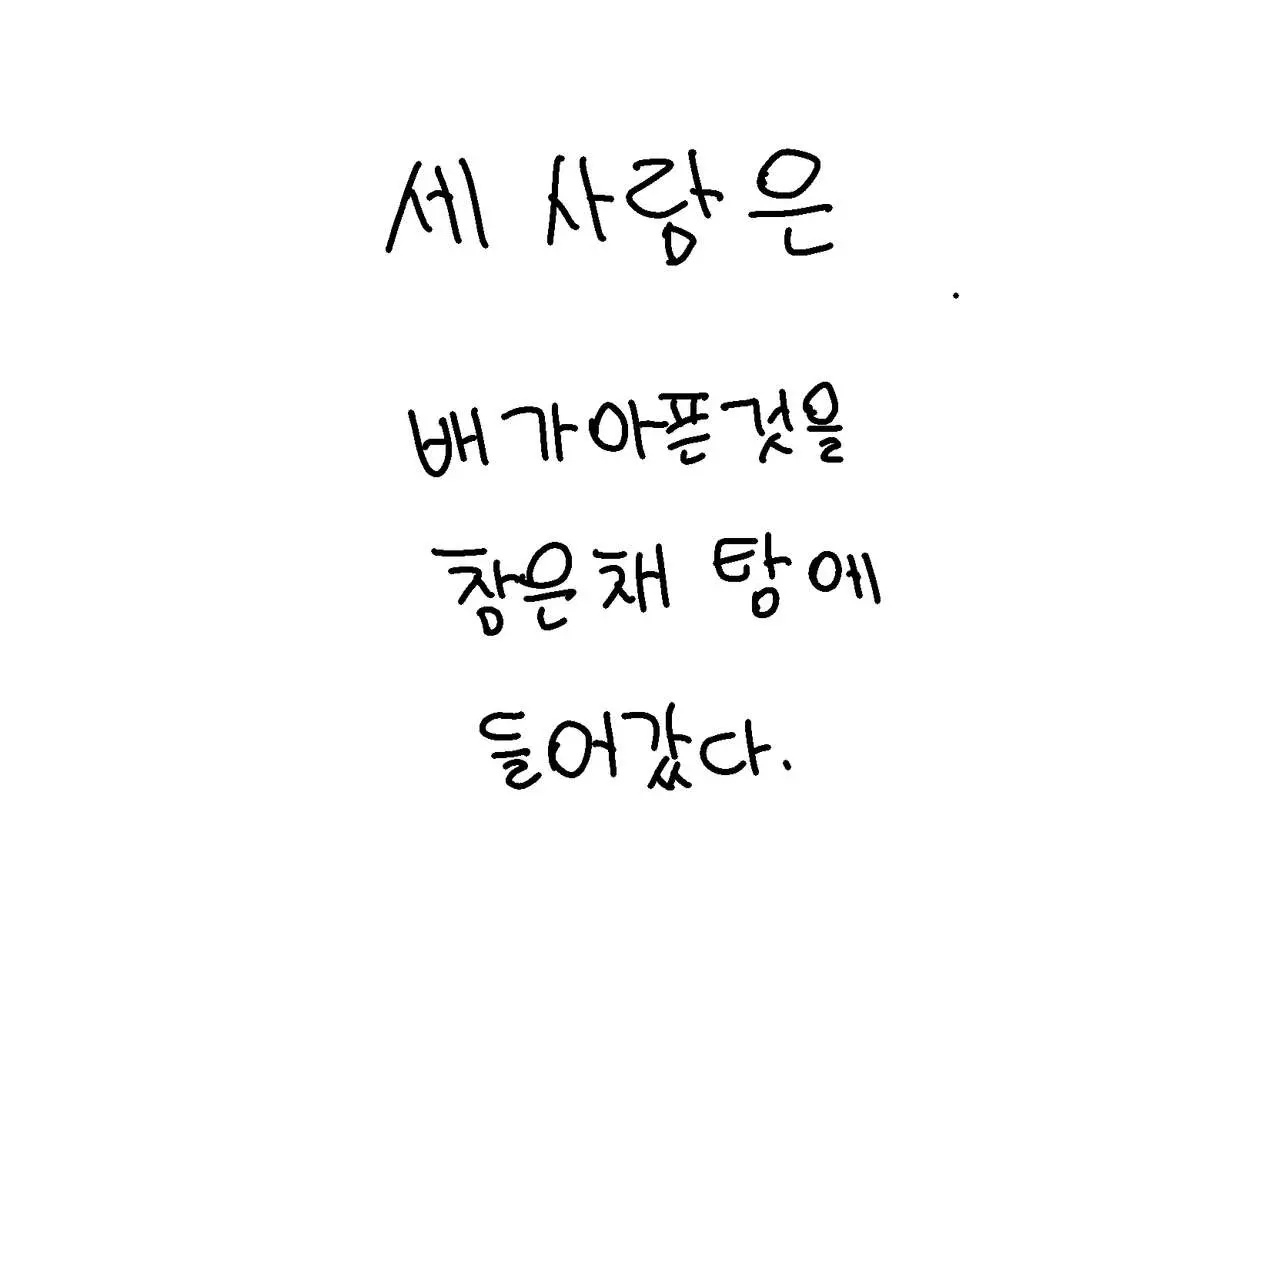 세 사람은
배가아픈것을
참은채 탕에
들어갔다.